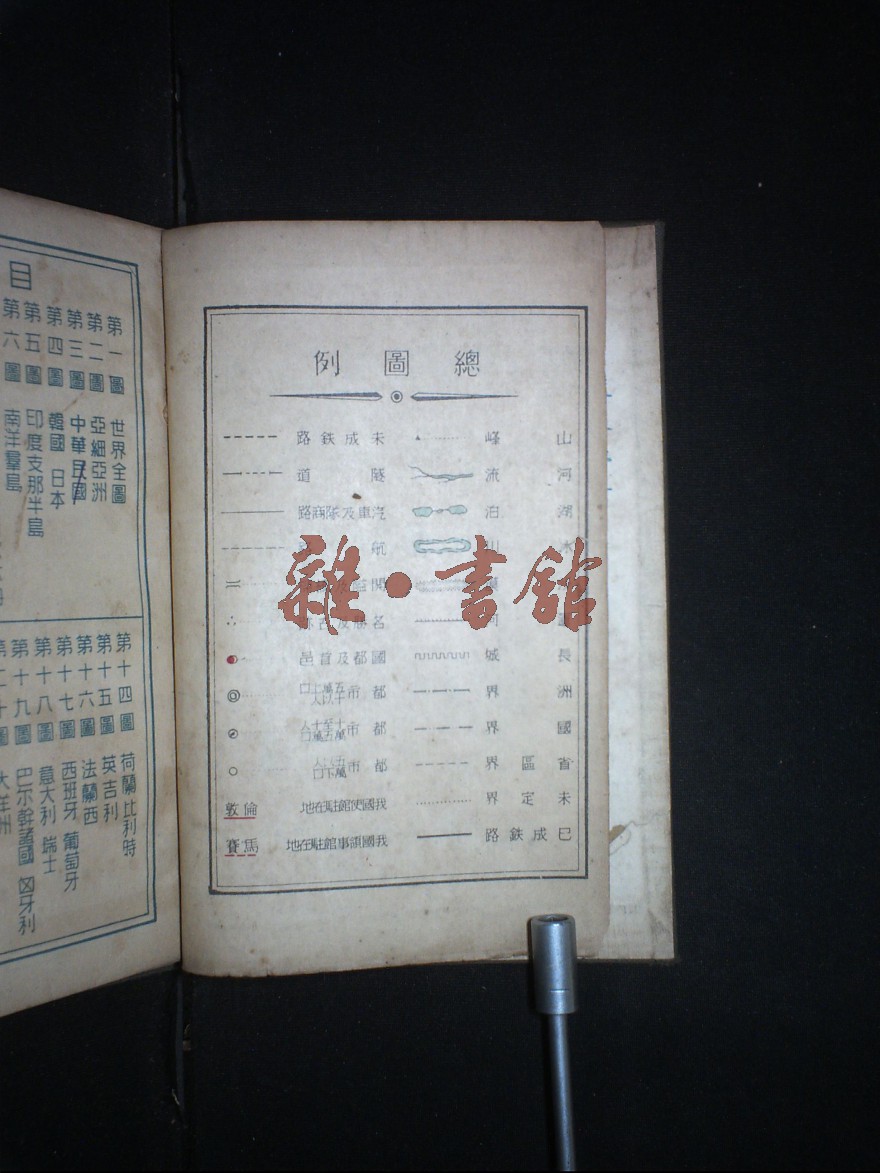 總圖例
山峰
河流
湖泊
長城
洲界
國界
省區界
未定界
已成鉄路
未成鉄路
隧道
汽車及隊商路
航
名勝及古
國都及首邑
都市
都市
都市
我國使館駐在地
倫敦
我國領事館駐在地
馬賽
雜·書館
目
第一圖 世界全圖
第二圖 亞細亞洲
第三圖 中華民國
第四圖 韓國 日本
第五圖 印度支那半島
第六圖 南洋羣島
第十四圖 荷蘭比利時
第十五圖 英吉利
第十六圖 法蘭西
第十七圖 西班牙 葡萄牙
第十八圖 意大利 瑞士
第十九圖 巴尔幹諸國 匈牙利
大洋洲